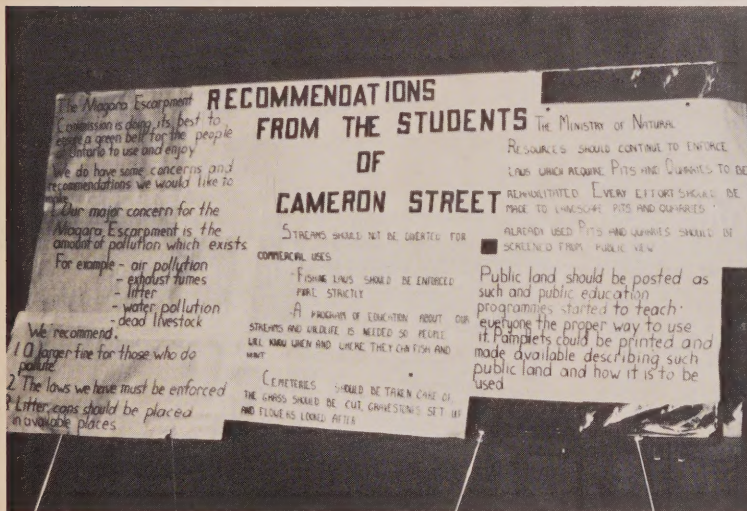 RECOMMENDATIONS
FROM THE STUDENTS
OF
CAMERON STREET
The Niagara Escarpment
Commission is doing its best to
ensure a green belt for the people
of Ontario to use and enjoy
We do have some concerns and
recommendations we would like to
1. Our major concern for the
Niagara Escarpment is the
amount of pollution which exists
For example - air pollution
- exhaust fumes
- litter
- water pollution
- dead livestock
We recommend.
1 a larger fine for those who do
pollute
2. The laws we have must be enforced
3 Litter cans should be placed
in available places
STREAMS SHOULD NOT BE DIVERTED FOR
COMMERCIAL USES
- FISHING LAWS SHOULD BE ENFORCED
MORE STRICTLY
- A PROGRAM OF EDUCATION ABOUT OUR
STREAMS AND WILDLIFE IS NEEDED SO PEOPLE
WILL KNOW WHEN AND WHERE THEY CAN FISH AND
HUNT
CEMETERIES SHOULD BE TAKEN CARE OF,
THE GRASS SHOULD BE CUT, GRAVESTONES SET UP
AND FLOWERS LOOKED AFTER
THE MINISTRY OF NATURAL
RESOURCES SHOULD CONTINUE TO ENFORCE
LAWS WHICH REQUIRE PITS AND QUARRIES TO BE
REHABILITATED EVERY EFFORT SHOULD BE
MADE TO LANDSCAPE PITS AND QUARRIES
ALREADY USED PITS AND QUARRIES SHOULD BE
SCREENED FROM PUBLIC VIEW
Public land should be posted as
such and public education
programmes started to teach
everyone the proper way to use
it. Pamplets could be printed and
made available describing such
public land and how it is to be
used